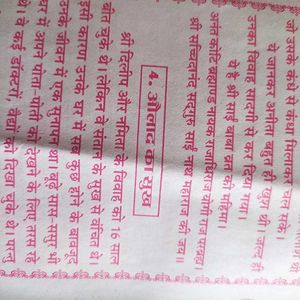 जो उसके कंधे से कंधा मिलाकर चल सके।
ये जानकर अनीता बहुत ही खुश थी। जल्द ही
उनका रिश्ता खुशी से कर दिया गया।
ये है श्री साईं बाबा ज्ञान की महिमा।
अनंत कोटि ब्रह्माण्ड नायक राजाधिराज योगी राज परब्रह्म।
श्री सच्चिदानन्द सदगुरु साईं नाथ महाराज की जय ॥
4. औलाद का सुख
श्री दिलीप और नमिता के विवाह को 16 साल
बीत चुके थे लेकिन वे संतान के सुख से वंचित थे
इसी कारण उनके घर में सब कुछ होने के बावजूद
उनके जीवन में एक सूनापन था। सास ससुर भी
बस अपने पोता-पोती को देखने के लिए तरस रहे
थे। वे कई डाक्टरों, वैद्यों को दिखा चुके थे परन्तु